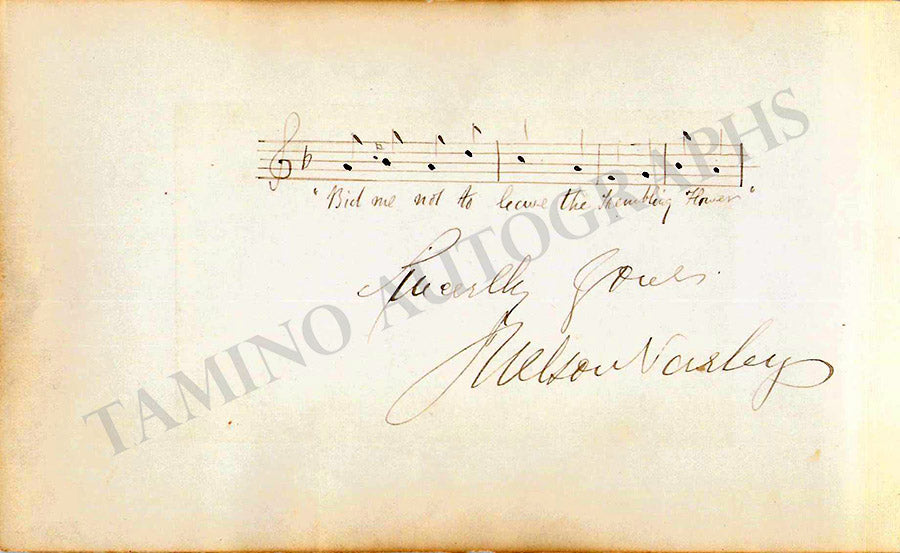 "Bid me not to leave the trembling Flower"
Sincerely Yours
Nelson Varley
TAMINO AUTOGRAPHS